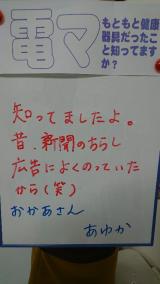 電マ
もともと健康
器具だったこ
と知ってます
か?
知ってましたよ。
昔、新聞のちらし
広告によくのっていた
から(笑)
おかあさん
あゆか